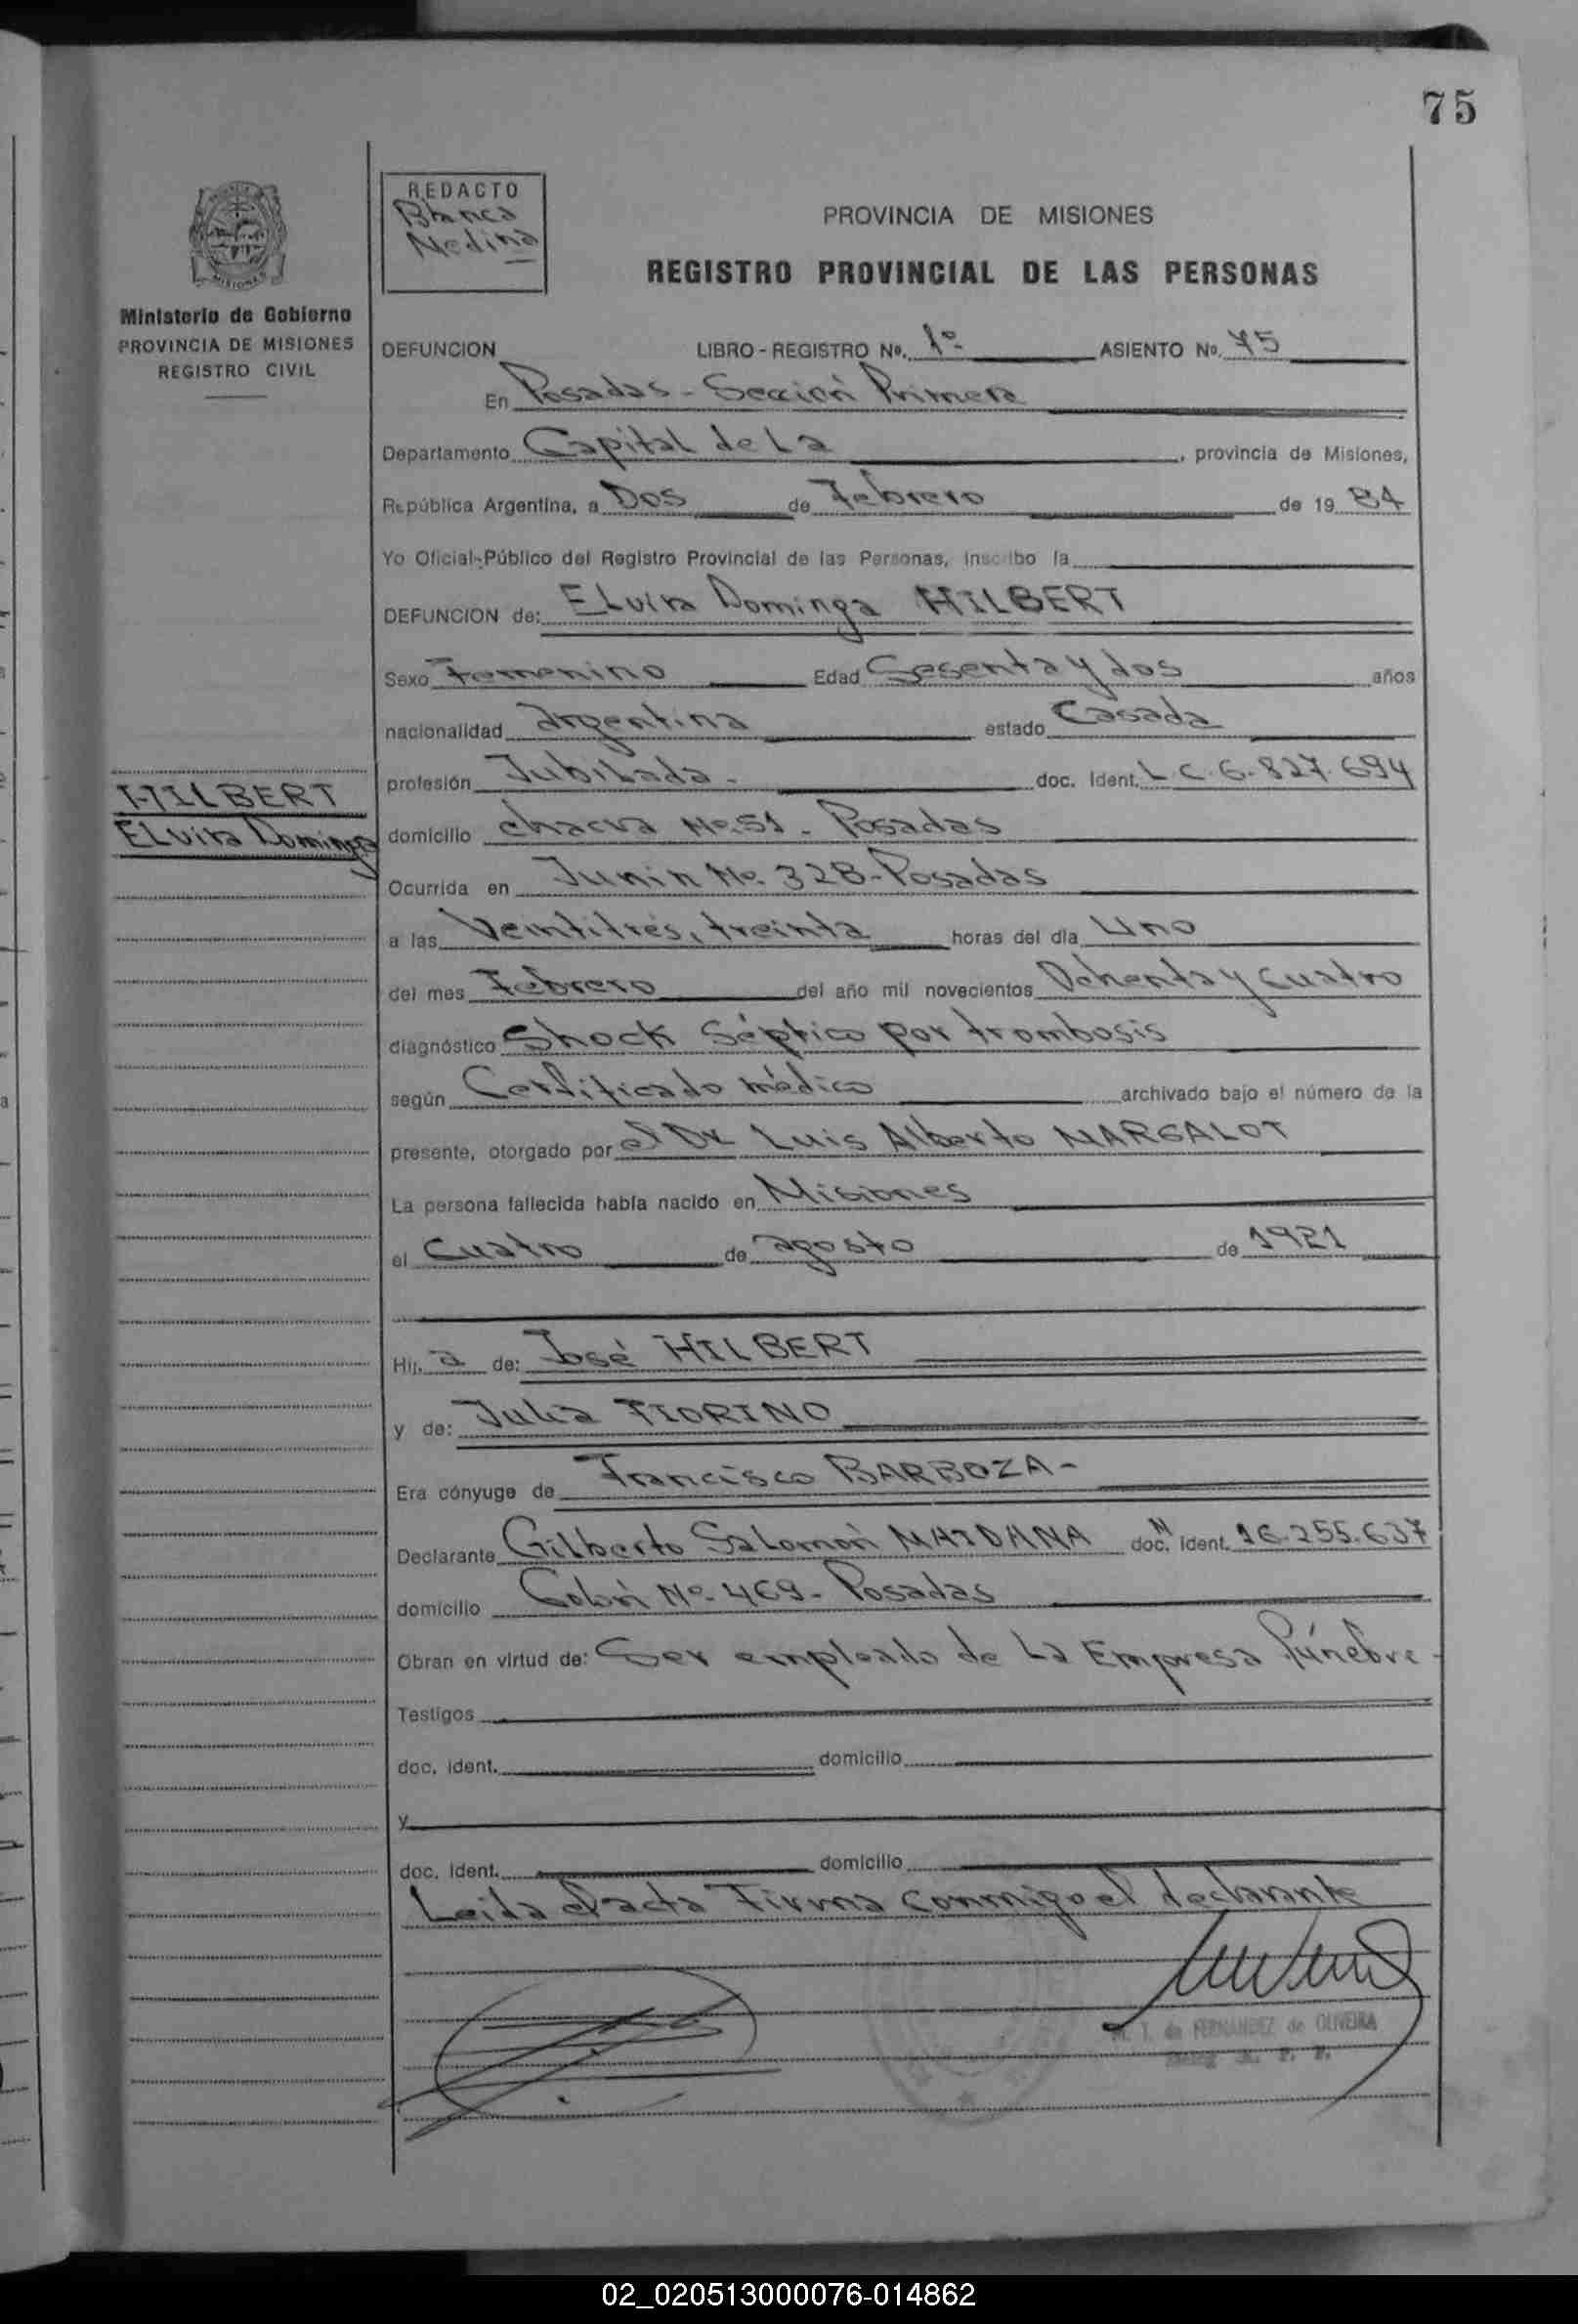 75
REDACTO
Blanca
Medina
PROVINCIA DE MISIONES
REGISTRO PROVINCIAL DE LAS PERSONAS
MISIONES
Ministerio de Gobierno
PROVINCIA DE MISIONES
REGISTRO CIVIL
DEFUNCION LIBRO - REGISTRO Nº. 1º- ASIENTO Nº. 75
En Posadas - Sección Primera
Departamento Capital de La , provincia de Misiones,
República Argentina, a Dos de Febrero de 1984
Yo Oficial Público del Registro Provincial de las Personas, inscribo la
DEFUNCION de: Elvira Dominga HILBERT
Sexo Femenino Edad Sesenta y dos años
nacionalidad argentina estado Casada
profesión Jubilada - doc. Ident. L C. 6.827.694
HILBERT
Elvira Dominga
domicilio chacra Nº 51 - Posadas
Ocurrida en Junin Nº 328 - Posadas
a las Veintitrés, treinta horas del día Uno
del mes Febrero del año mil novecientos Ochenta y cuatro
diagnóstico Shock Séptico por trombosis
según Certificado médico archivado bajo el número de la
presente, otorgado por el Dr Luis Alberto MARGALOT
La persona fallecida había nacido en Misiones
el Cuatro de agosto de 1921
Hij. a de: José HILBERT
y de: Julia FIORINO
Era cónyuge de Francisco BARBOZA -
Declarante Gilberto Salomón MAIDANA doc. N Ident. 16.255.637
domicilio Colón Nº 469 - Posadas
Obran en virtud de: Ser empleado de La Empresa fúnebre -
Testigos
doc. Ident. domicilio
y
doc. Ident. domicilio
Leida el acta Firma conmigo el declarante
M. T. de FERNANDEZ de OLIVEIRA
02_020513000076-014862